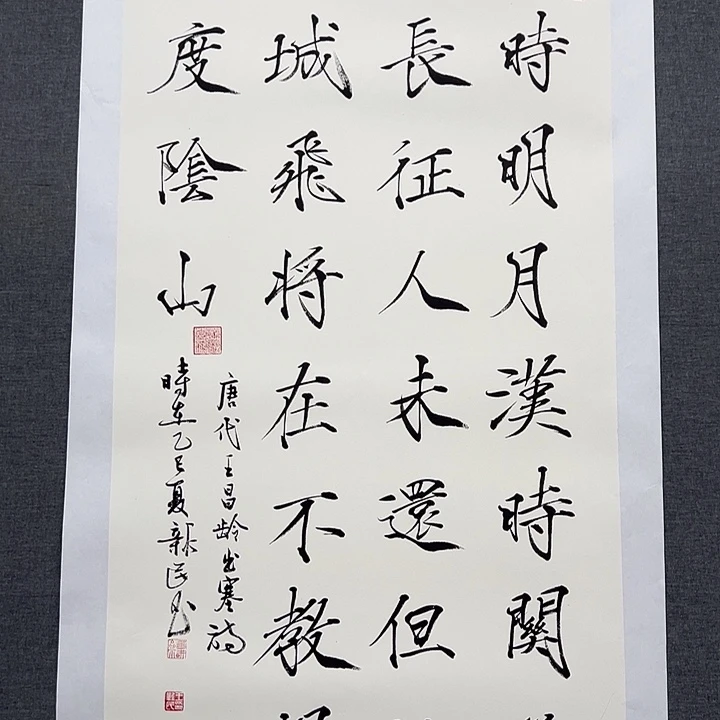 時明月漢時關
長征人未還但
城飛将在不教
度陰山
唐代王昌齡出塞詩
時在乙巳夏
书